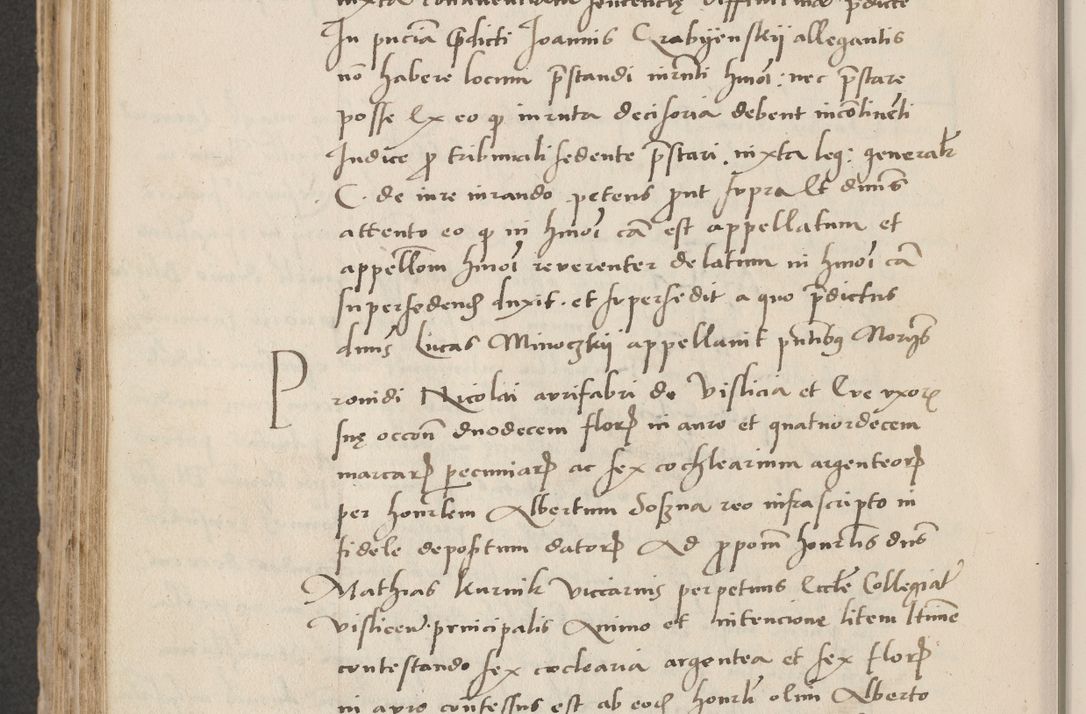 iuxta sentencię diffinitivæ p̃dicte
In pñciã p̃dicti Joannis Grabyenskij allegantis
nõ habere locum p̃standi iurñti hmõi: nec p̃stare
posse Ex eo q̃ iuruta decisoria debent incõtinẽti
Judice p̃ tribunali sedente p̃stari, iuxta leg: generalr̃
C. de iure iurando petens prout supra Et dnũs
attento eo q̃ in hmõi cã est appellatum et
appellõm hmõi reverenter delatum in hmõi cã
supersedend duxit. et supersedit a quo p̃dictus
dnũs Lucas Minoczkij appellavit pñtibq Norijs
Providi Nicolai aurifabri de Vislicia et Eve uxoris
suę occõn duodecem florꝝ in auro et quatuordecem
marcarꝝ pecuniarꝝ ac sex cochlearium argenteorꝝ
per honrlem Albertum Doszna reo infrascripto in
fidele depositum datorꝝ Ad p̃põm honrlis dnũs
Mathias Kurnik Viccarius perpetuus Eccłe Collegiatę
vislicien̄ principalis Animo et intencione litem ltime
contestando sex coclearia argentea et sex florꝝ
in auro confessus est ab eod honrli olim Alberto